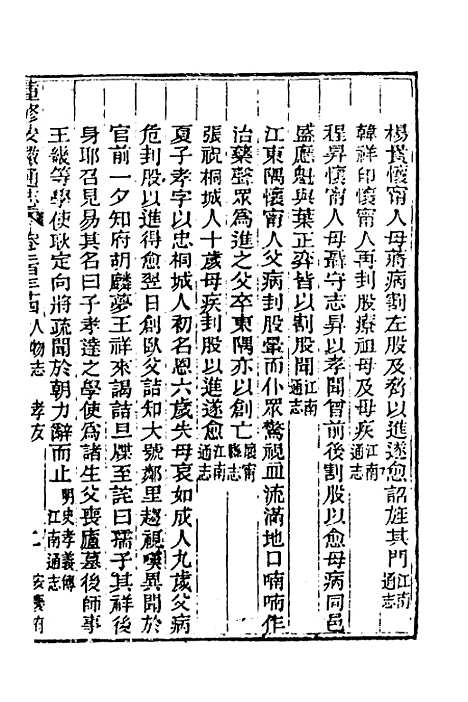 楊㦂懷甯人母病割左股及脅以進遂愈詔旌其門江南通志
韓祥印懷甯人再刲股療祖母及母疾江南通志
程昇懷甯人母蕭守志昇以孝聞曾前後割股以愈母病同邑
盛應魁與葉正弈皆以割股聞江南通志
江東隅懷甯人父病刲股暈而仆眾驚視血流滿地口喃喃作
治藥聲眾為進之父卒東隅亦以創亡懷甯縣志
張祝桐城人十歲母疾刲股以進遂愈江南通志
夏子孝字以忠桐城人初名恩六歲失母哀如成人九歲父病
危刲股以進得愈翌日創臥父詰知大號鄰里趨視嘆異聞於
官前一夕知府胡麟夢王祥來謁詰旦牒至詫曰孺子其祥後
身耶召見易其名曰子孝達之學使為諸生父喪廬墓後師事
王畿等學使耿定向將疏聞於朝力辭而止明史孝義傳江南通志
重修安徽通志卷二百三十四人物志 孝友 二 安慶府